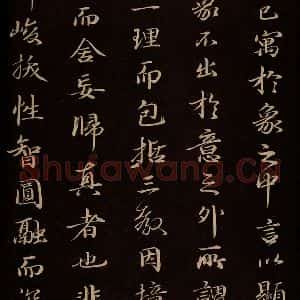 已寓於象之中言以顯
象不出於意之外所謂
一理而包括三教因
而舍妄歸真者也非
峻拔性智圓融而
Shufawang.Cn